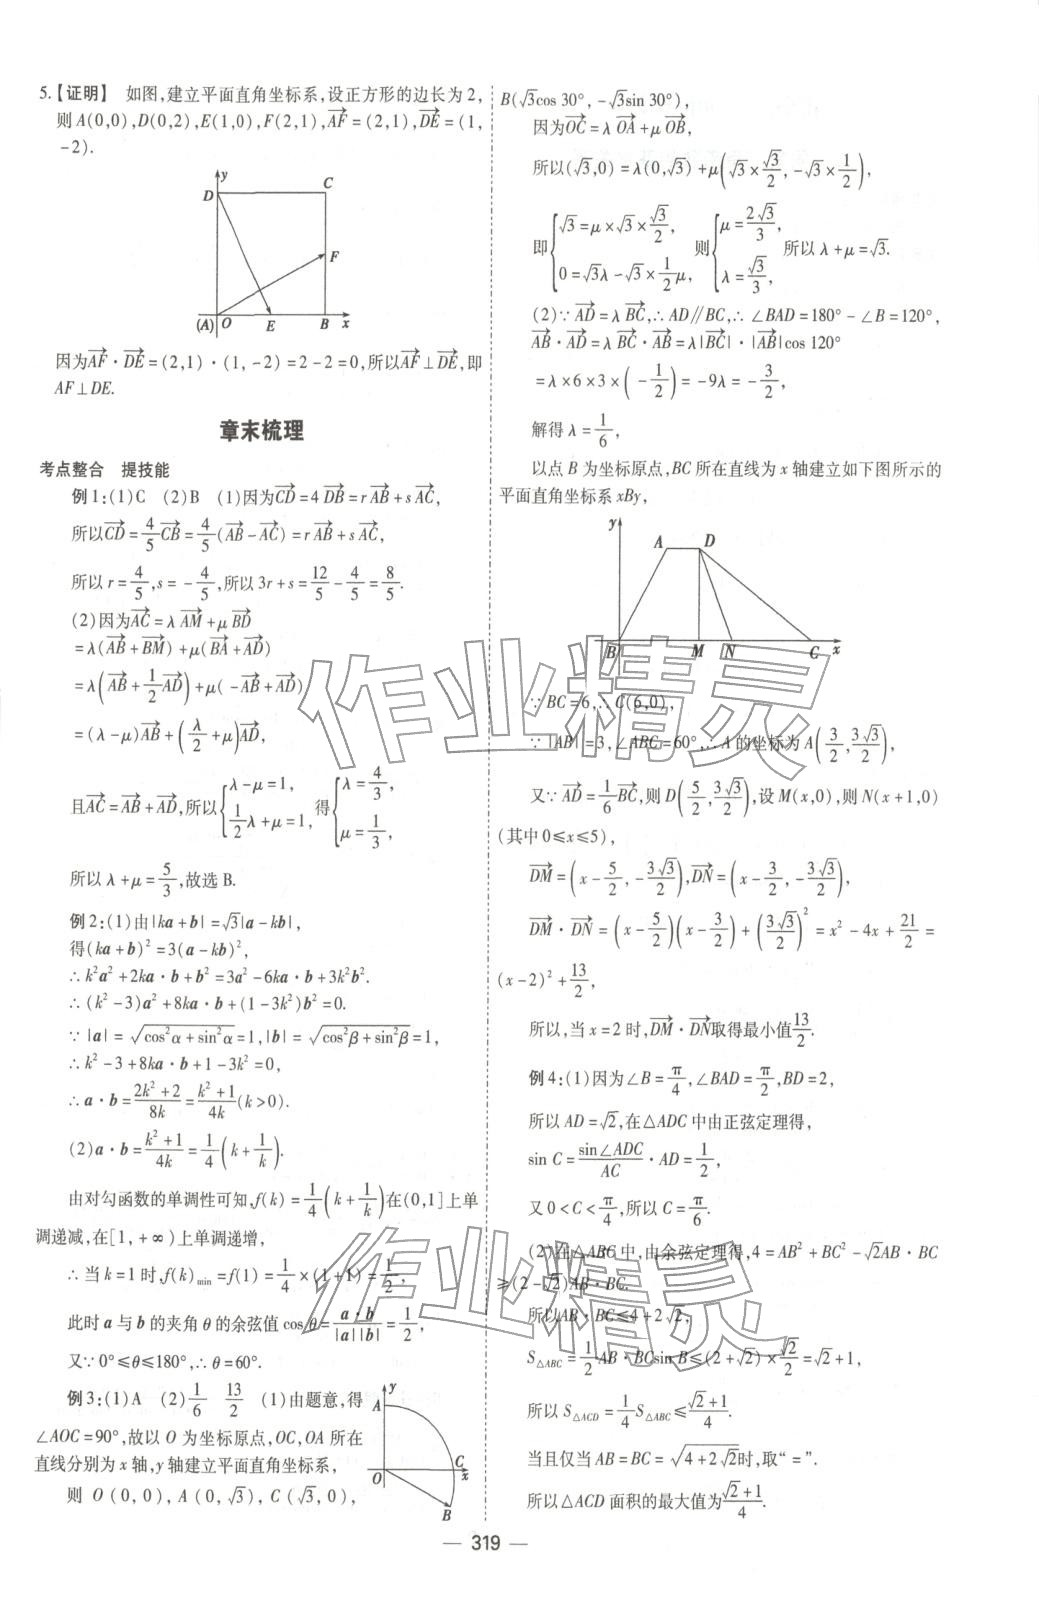 5.【证明】 如图,建立平面直角坐标系,设正方形的边长为2,
则A(0,0),D(0,2),E(1,0),F(2,1),$\overrightarrow{AF}$=(2,1),$\overrightarrow{DE}$=(1,
-2).
y
D C
F
(A) O E B x
因为$\overrightarrow{AF}$·$\overrightarrow{DE}$=(2,1)·(1,-2)=2-2=0,所以$\overrightarrow{AF}$⊥$\overrightarrow{DE}$,即
AF⊥DE.
章末梳理
考点整合 提技能
例1:(1)C (2)B (1)因为$\overrightarrow{CD}$=4$\overrightarrow{DB}$=r$\overrightarrow{AB}$+s$\overrightarrow{AC}$,
所以$\overrightarrow{CD}$=$\frac{4}{5}$$\overrightarrow{CB}$=$\frac{4}{5}$($\overrightarrow{AB}$-$\overrightarrow{AC}$)=r$\overrightarrow{AB}$+s$\overrightarrow{AC}$,
所以r=$\frac{4}{5}$,s=-$\frac{4}{5}$,所以3r+s=$\frac{12}{5}$-$\frac{4}{5}$=$\frac{8}{5}$.
(2)因为$\overrightarrow{AC}$=λ$\overrightarrow{AM}$+μ$\overrightarrow{BD}$
=λ($\overrightarrow{AB}$+$\overrightarrow{BM}$)+μ($\overrightarrow{BA}$+$\overrightarrow{AD}$)
=λ($\overrightarrow{AB}$+$\frac{1}{2}$$\overrightarrow{AD}$)+μ(-$\overrightarrow{AB}$+$\overrightarrow{AD}$)
=(λ-μ)$\overrightarrow{AB}$+($\frac{λ}{2}$+μ)$\overrightarrow{AD}$,
且$\overrightarrow{AC}$=$\overrightarrow{AB}$+$\overrightarrow{AD}$,所以{λ-μ=1, $\frac{1}{2}$λ+μ=1, 得{λ=$\frac{4}{3}$, μ=$\frac{1}{3}$,
所以λ+μ=$\frac{5}{3}$,故选B.
例2:(1)由|ka+b|=√3|a-kb|,
得(ka+b)²=3(a-kb)²,
∴k²a²+2ka·b+b²=3a²-6ka·b+3k²b².
∴(k²-3)a²+8ka·b+(1-3k²)b²=0.
∵|a|=$\sqrt{\cos^2α+\sin^2α}$=1,|b|=$\sqrt{\cos^2β+\sin^2β}$=1,
∴k²-3+8ka·b+1-3k²=0,
∴a·b=$\frac{2k^2+2}{8k}$=$\frac{k^2+1}{4k}$(k>0).
(2)a·b=$\frac{k^2+1}{4k}$=$\frac{1}{4}$(k+$\frac{1}{k}$).
由对勾函数的单调性可知,f(k)=$\frac{1}{4}$(k+$\frac{1}{k}$)在(0,1]上单
调递减,在[1,+∞)上单调递增,
∴当k=1时,f(k)$_{min}$=f(1)=$\frac{1}{4}$×(1+1)=$\frac{1}{2}$,
此时a与b的夹角θ的余弦值cosθ=$\frac{a·b}{|a||b|}$=$\frac{1}{2}$,
又∵0°≤θ≤180°,∴θ=60°.
例3:(1)A (2)$\frac{1}{6}$ $\frac{13}{2}$ (1)由题意,得
∠AOC=90°,故以O为坐标原点,OC,OA所在
直线分别为x轴,y轴建立平面直角坐标系,
则O(0,0),A(0,√3),C(√3,0),
y
A
O C x
B
B(√3cos 30°,-√3sin 30°),
因为$\overrightarrow{OC}$=λ$\overrightarrow{OA}$+μ$\overrightarrow{OB}$,
所以(√3,0)=λ(0,√3)+μ(√3×$\frac{√3}{2}$,-√3×$\frac{1}{2}$),
即{√3=μ×√3×$\frac{√3}{2}$, 0=√3λ-√3×$\frac{1}{2}$μ, 则{μ=$\frac{2√3}{3}$, λ=$\frac{√3}{3}$, 所以λ+μ=√3.
(2)∵$\overrightarrow{AD}$=λ$\overrightarrow{BC}$,∴AD∥BC,∴∠BAD=180°-∠B=120°,
$\overrightarrow{AB}$·$\overrightarrow{AD}$=λ$\overrightarrow{BC}$·$\overrightarrow{AB}$=λ|$\overrightarrow{BC}$|·|$\overrightarrow{AB}$|cos 120°
=λ×6×3×(-$\frac{1}{2}$)=-9λ=-$\frac{3}{2}$,
解得λ=$\frac{1}{6}$,
以点B为坐标原点,BC所在直线为x轴建立如下图所示的
平面直角坐标系xBy,
y
A D
B M N C x
∵BC=6,∴C(6,0),
∵|AB|=3,∠ABC=60°,∴A的坐标为A($\frac{3}{2}$,$\frac{3√3}{2}$),
又∵$\overrightarrow{AD}$=$\frac{1}{6}$$\overrightarrow{BC}$,则D($\frac{5}{2}$,$\frac{3√3}{2}$),设M(x,0),则N(x+1,0)
(其中0≤x≤5),
$\overrightarrow{DM}$=(x-$\frac{5}{2}$,-$\frac{3√3}{2}$),$\overrightarrow{DN}$=(x-$\frac{3}{2}$,-$\frac{3√3}{2}$),
$\overrightarrow{DM}$·$\overrightarrow{DN}$=(x-$\frac{5}{2}$)(x-$\frac{3}{2}$)+($\frac{3√3}{2}$)²=x²-4x+$\frac{21}{2}$=
(x-2)²+$\frac{13}{2}$,
所以,当x=2时,$\overrightarrow{DM}$·$\overrightarrow{DN}$取得最小值$\frac{13}{2}$.
例4:(1)因为∠B=$\frac{π}{4}$,∠BAD=$\frac{π}{2}$,BD=2,
所以AD=√2,在△ADC中由正弦定理得,
sin C=$\frac{\sin∠ADC}{AC}$·AD=$\frac{1}{2}$,
又0<C<$\frac{π}{4}$,所以C=$\frac{π}{6}$.
(2)在△ABC中,由余弦定理得,4=AB²+BC²-√2AB·BC
≥(2-√2)AB·BC.
所以AB·BC≤4+2√2,
S$_{△ABC}$=$\frac{1}{2}$AB·BCsin B≤(2+√2)×$\frac{√2}{2}$=√2+1,
所以S$_{△ACD}$=$\frac{1}{4}$S$_{△ABC}$≤$\frac{√2+1}{4}$.
当且仅当AB=BC=$\sqrt{4+2√2}$时,取“=”.
所以△ACD面积的最大值为$\frac{√2+1}{4}$.
作业精灵
作业精灵
— 319 —